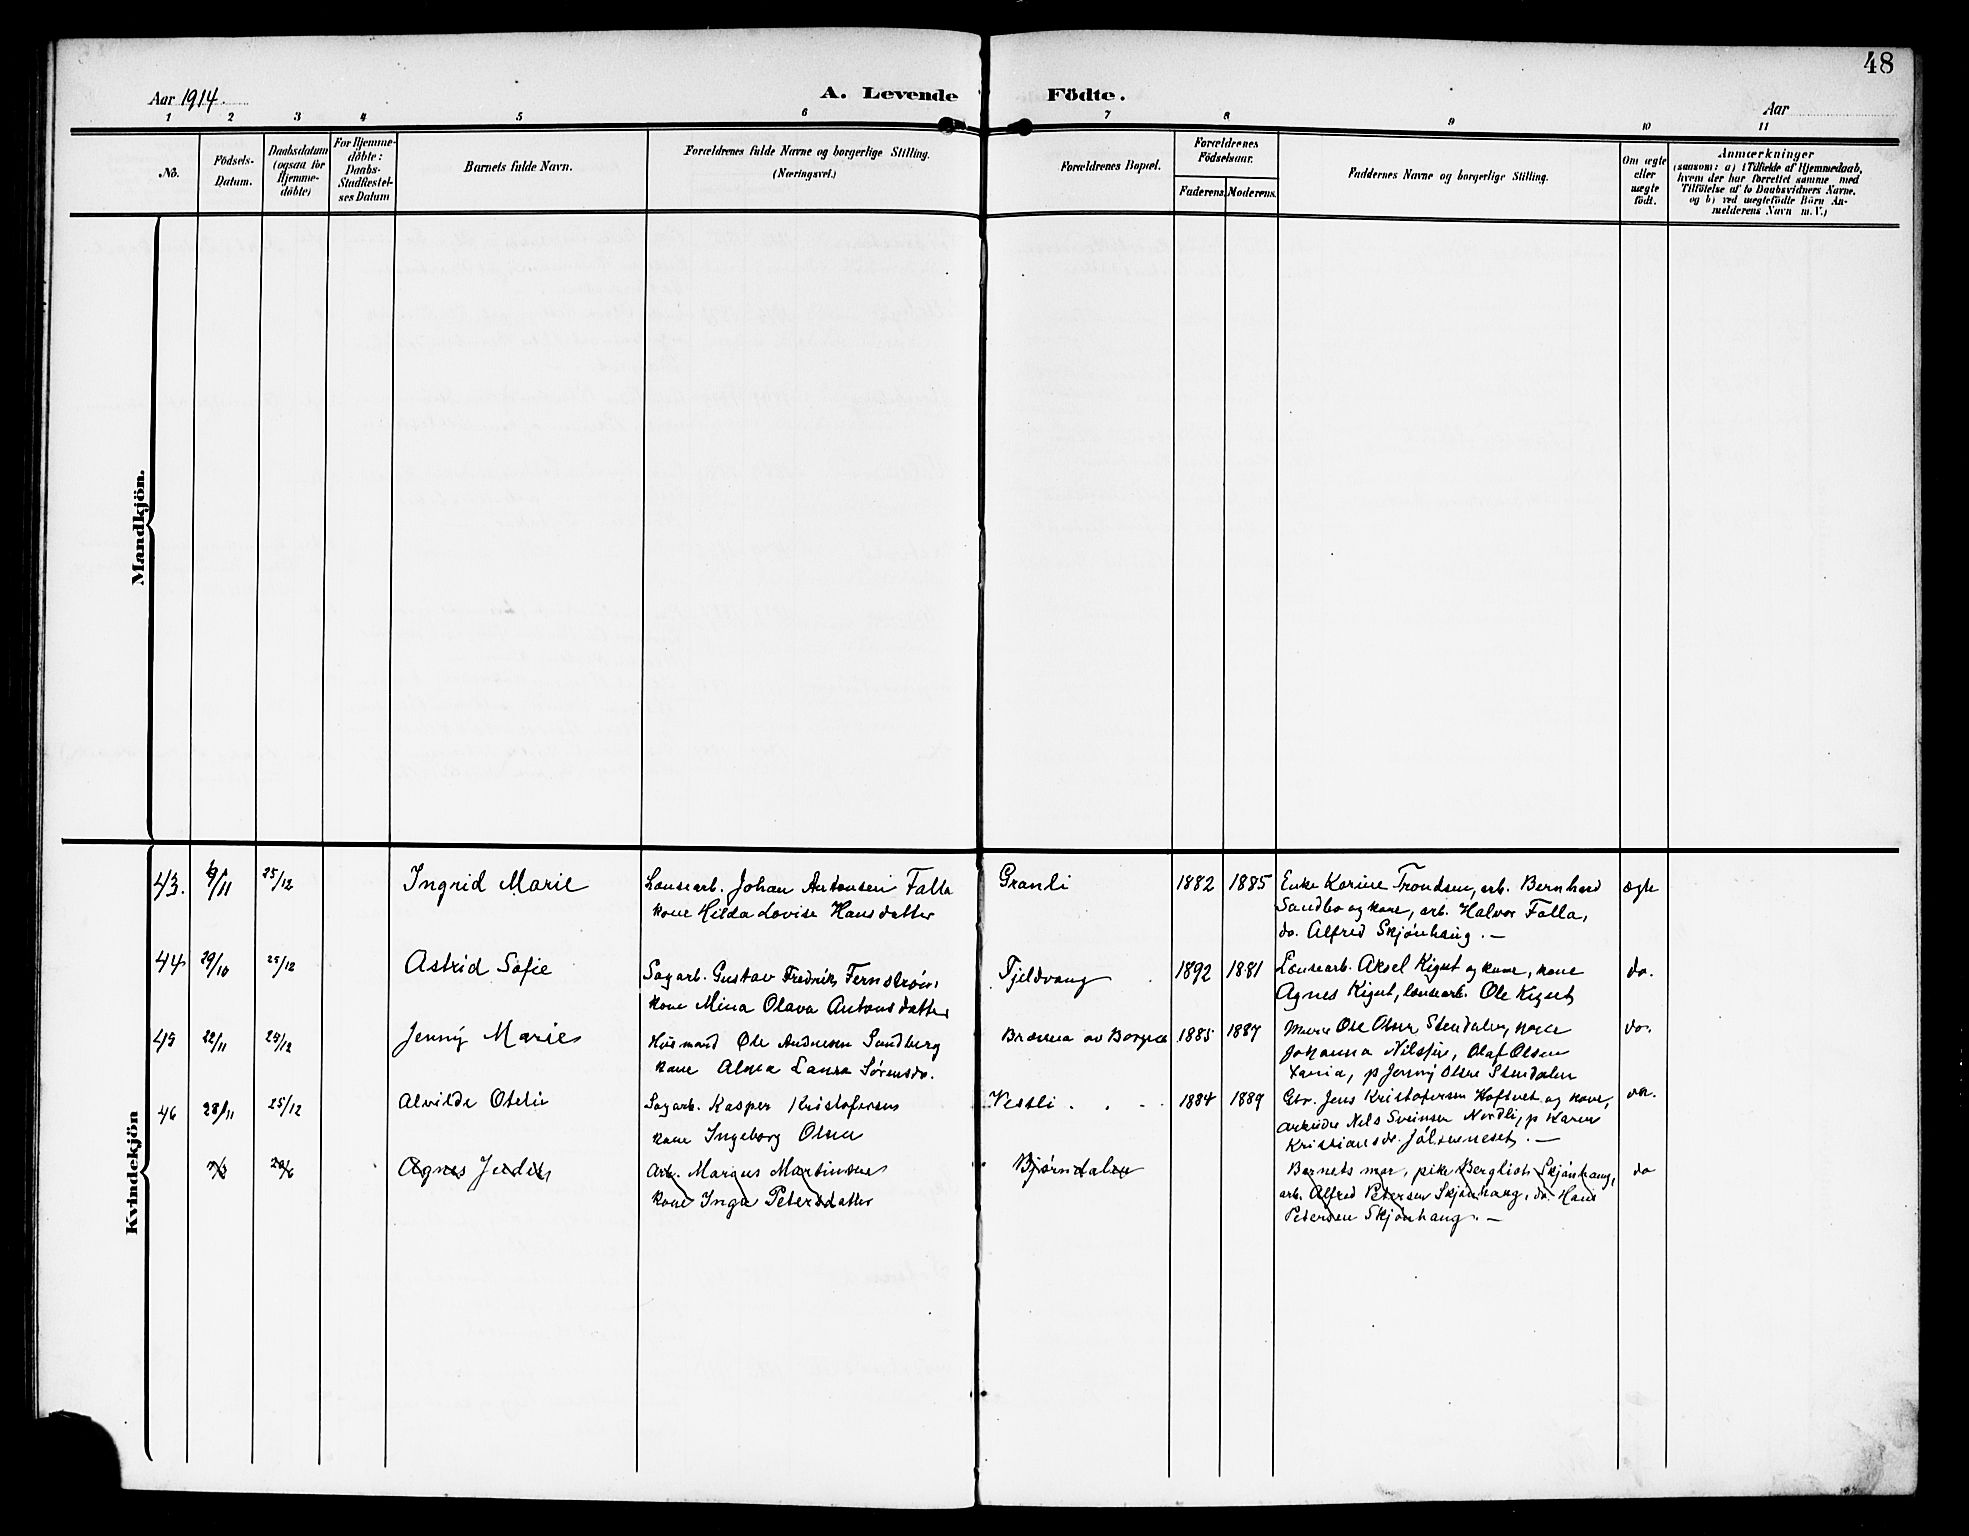 48
Aar 1914.
A. Levende Födte.
Aar
1 2 3 4 5 6 7 8 9 10 11
No.
Födsels-Datum.
Daabsdatum (ogsaa for Hjemme-döbte)
For Hjemme-döbte: Daabs-Stadfæstel-ses Datum
Barnets fulde Navn.
Forældrenes fulde Navne og borgerlige Stilling.
(Næringsvei.)
Forældrenes Bopæl.
Forældrenes Födselsaar.
Faderens. Moderens.
Faddernes Navne og borgerlige Stilling.
Om ægte eller uægte födt.
Anmærkninger
(saasom: a) i Tilfælde af Hjemmedaab,
hvem der har forrettet samme med
Tilföielse af to Daabsvidners Navne,
og b) ved uægtefödte Börn An-
melderens Navn m. V.)
Mandkjön.
Kvindekjön
43. 9/11 25/12 Ingrid Marie Lousearb. Johan Antonsen Falla Granli 1882 1885 Enke Karine Trondsen, arb. Bernhard ægte
kone Hilda Lovise Hansdatter Sandbo og kone, arb. Halvor Falla,
do. Alfred Skjønhaug. —
44 29/10 25/12 Astrid Sofie Sagarb. Gustav Fredrik Fernstrøm, Fjeldvang 1892 1881 Lousearb. Aksel Kigut og kone, kone do.
kone Mina Olava Antonsdatter Agnes Kigut, lousearb. Ole Kigut
45 22/11 25/12 Jenny Marie Husmand Ole Andresen Sundberg Braenna av Borgen 1885 1887 Murer Ole Olsen Stendalen, kone do.
kone Alma Laura Sørensdr. Johanna Nilsen, Olaf Olsen
p Jenny Olsen Stendalen
46 28/11 25/12 Alvilde Otelie Sagarb. Kasper Kristofersen Vestli 1884 1889 Gbr. Jens Kristofersen Hoftvet og kone, do.
kone Ingeborg Olsen arbeider Nils Sveinsen Nordli, p Karen
Kristiansdr. Jölsenneset. —
7/3 20/6 Agnes Judith Arb. Margus Martinsen Bjørndalen Barnets mor, pike Bergliot Skjønhaug, do
kone Inga Petersdatter arb. Alfred Petersen Skjønhaug, do. Hans
Petersen Skjønhaug. —